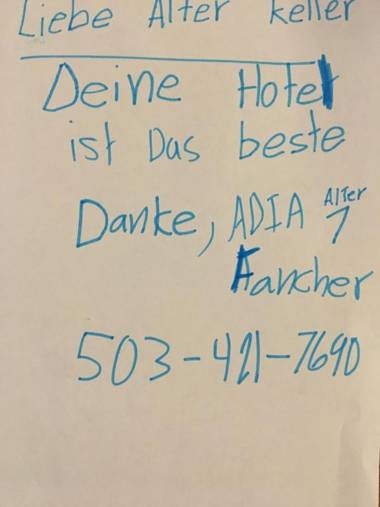 Liebe Alter keller
Deine Hotel
ist Das beste
Danke, ADIA Alter 7
Fancher
503-421-7690